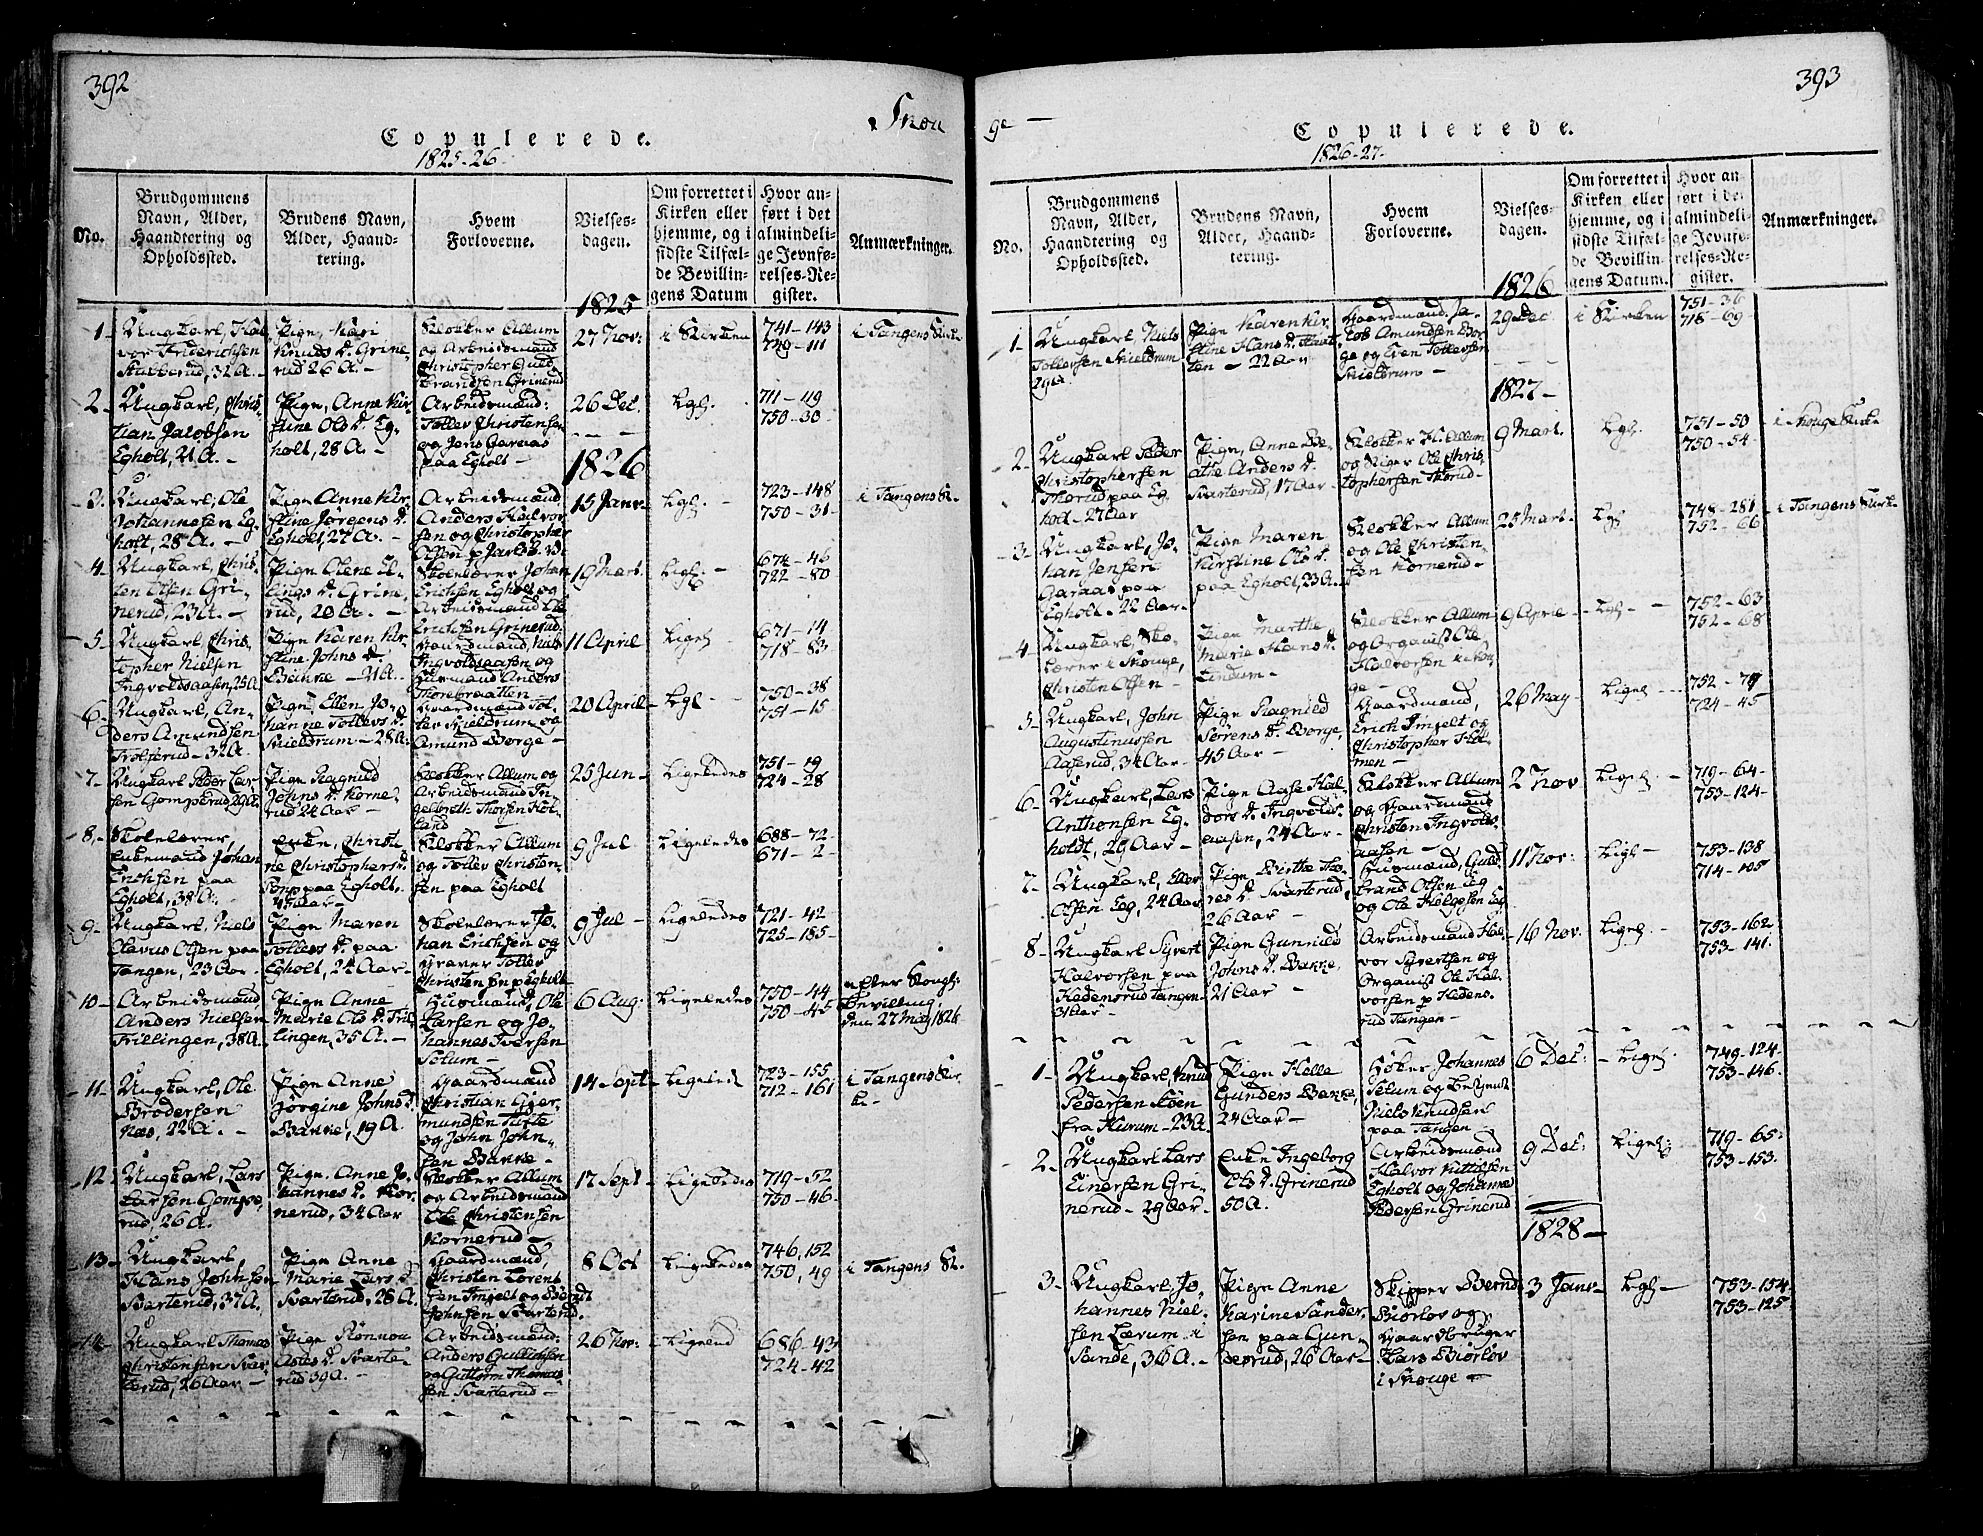 392
Snou
Copulerede.
1825-26
No.
Brudgommens
Navn, Alder,
Haandtering og
Opholdssted.
Brudens Navn,
Alder, Haand-
tering.
Hvem
Forloverne.
Vielses-
dagen.
Om forrettet i
Kirken eller
hjemme, og i
sidste Tilfæl-
de Bevillin-
gens Datum
Hvor an-
ført i det
almindeli-
ge Jevnfø-
relses-Re-
gister.
Anmærkninger.
1825
1-
Ungkarl, Hal
vor Friderichsen
32 A. -
Pige, Kari
Knuds D. Grine-
rud 26 A. -
Klokker Allum
og Arbeidsmand
Christopher Guld
brandsen Grinerud
27 Nov:
i Kirken
741-143
749-111
i Tangens Kirke
2-
Ungkarl, Chris-
tian Jacobsen
Egholt, 21 A. -
Pige, Anne Kir-
stine Ols D. Eg-
holt, 28 A. -
Arbeidsmænd:
Tollev Christensen
og Jens Garaas
paa Egholt -
26 Dec.
Lgl.
711-119
750-30
1826
3.
Ungkarl, Ole
Johannesen Eg-
holt, 28 A. -
Pige Anne Kir-
stine Jörgens D.
Egholt, 27 A. -
Arbeidsmænd
Anders Halvor
sen og Christopher
Olsen p
15 Janr-
Lgl. -
723-148
750-31
i Tangens K.
4-
Ungkarl, Chris-
ten Olsen Gri-
nerud, 23 A. -
Pige Olene El-
lings D. Grine
rud, 20 A. -
Skolelærer Johan
Erichsen Egholt og
Arbeidsmand Ole
Erichsen Grinerud
19 Mart.
Ligl. -
674-46
722-80
5-
Ungkarl, Chris-
topher Nielsen
Ingvoldsaasen, 25 A.
Pige Karen Kir-
stine Johns D
21 A.
Gaardmand, Niels
Ingvoldsaasen og
Huusmand Anders
Thorebraatten
11 April
Ligel.
671-14
718-83
6-
Ungkarl, An-
ders Amundsen
Trolsrud - 32 A.
Pige Ellen Jo-
hanne Tollevs D.
Skieldrum - 28 A.
Gaardmænd Tol-
lev Skieldrum og
Amund Borge -
20 April
Lgl -
750-38
751-15
7-
Ungkarl Peder Lar-
sen Gompsrud, 29 A.
Pige Ragnild
Johns D. Korne-
rud 24 Aar
Klokker Allum og
Arbeidsmand In-
gelbreth Thorsen Hol-
land -
25 Jun-
Ligeledes
751-19
724-28
8,-
Skolelærer,
Enkemand Johan
Erichsen paa
Egholt, 38 A. -
Enke, Christi-
ne Christophersd.
paa Egholt,
45 Aar -
Klokker Allum
og Tollev Christen-
sen paa Egholt
9 Jul
Ligeledes
688-72
671-2-
9-
Ungkarl, Niels
Olavus Olsen paa
Tangen, 23 Aar.
Pige Maren
Tollevs D. paa
Egholt, 24 Aar -
Skolelærer Jo-
han Erichsen og
Graver Tollev
Christensen p Egholt
9 Jul -
Ligeledes
721-42
725-185-
10-
Arbeidsmand
Anders Nielsen
Trillingen, 38 A.
Pige Anne
Marie Ols D. Tril-
lingen, 35 A. -
Huusmænd, Ole
Larsen og Jo-
hannes Iversen
Solum -
6 Aug.
Ligeledes
750-44
750-45
efter Kongl.
Bevilling,
den 27 May, 1826
11-
Ungkarl, Ole
Brodersen
Næs, 22 A. -
Pige Anne
Jörgine Johns D.
Bakke, 19 A.
Gaardmænd
Christian Gjer-
mundsen Tufte
og John John-
sen Bakke -
14 Sept-
Ligelede
723-155
712-161
i Tangens Kir
ke
12
Ungkarl, Lars
Larsen Gomps-
rud, 26 A.
Pige Anne Jo-
hannes D. Kor-
nerud, 34 Aar
Klokker Allum
og Arbeidsmand
Ole Christensen
Kornerud -
17 Sept -
Ligeledes
719-52
750-46-
13-
Ungkarl,
Hans Johnsen
Svarterud, 37 A.
Pige Anne
Marie Lars D.
Svarterud, 28 A.
Gaardmænd,
Christen Lorent
sen Fingelt og Berndt
Johnsen Svarterud.
8 Oct
Ligeledes
746, 152
750, 49
i Tangens K.
14
Ungkarl Thomas
Christensen Svar
terud, 26 Aar -
Pige Rönnou
Asles D. Svarte-
rud 39 A. -
Arbeidsmænd.
Anders Gullichsen
og Guttorm Thomas-
sen Svarterud -
26 Nov:
Ligeled
686-43
724-42
393
ge -
Copulerede.
1826-27-
No.
Brudgommens
Navn, Alder,
Haandtering og
Opholdssted.
Brudens Navn,
Alder, Haand-
tering.
Hvem
Forloverne.
Vielses-
dagen.
Om forrettet i
Kirken eller
hjemme, og i
sidste Tilfæl-
de Bevillin-
gens Datum.
Hvor an-
ført i det
almindeli-
ge Jevnfø-
relses-Re-
gister.
Anmærkninger.
1826
1-
Ungkarl, Niels
Tollevsen Skieldrum
29 A.
Pige Karen Kir-
stine Hans D.
- 22 Aar
Gaardmænd. Ja-
cob Amundsen Bor-
ge og Even Tollevsen
Skieldrum -
29 Dec
i Kirken
751-36
718-69
1827-
2-
Ungkarl Peder
Christophersen
Thorud paa Eg-
holt - 27 Aar
Pige, Anne Be-
athe Anders D.
Svarterud, 17 Aar -
Klokker H. Allum
og Niger Ole Chris-
tophersen Thorud -
9 Mart.
Lgl.
751-50
750-54-
i Skouge Kirke
3-
Ungkarl, Jo-
han Jensen
Garaas paa
Egholt - 22 Aar -
Pige Maren
Kirstine Ols D.
paa Egholt, 23 A.
Klokker Allum
og Ole Christen-
sen Kornerud -
25 Mart.
Lgl
748-281
752-66
i Tangens Kirke
4-
Ungkarl, Sko-
lærer i Skouge,
Christen Olsen -
Pige Marthe
Marie Hans D.
Lindum -
Klokker Allum
og Organist Ole
Halvorsen i Skou-
ge -
9 April -
Lgl -
752-63
752-68
5-
Ungkarl, John
Augustinussen
Aaserud, 34 Aar -
Pige Ragnild
Sörens D. Borge,
45 Aar -
Gaardmænd,
Erich Fingelt og
Christopher Hol-
men -
26 May
Ligel -
752-79
724-45
6-
Ungkarl, Lars
Anthonsen Eg-
holdt, 29 Aar -
Pige Aase Hal-
vors D. Ingvolds-
aasen, 24 Aar -
Klokker Allum
og Gaardmand
Christen Ingvolds-
aasen -
2 Nov
Ligel. -
719-64-
753-124-
7-
Ungkarl, Ellev
Olsen Eg, 24 Aar
Pige Birthe Tho-
res D. Svarterud,
26 Aar -
Huusmænd, Guld-
brand Olsen Eg
og Ole Helgesen Eg
11 Nov:
Ligl -
753-138
714-105
8-
Ungkarl Syvert
Halvorsen paa
Hedensrud Tangen-
31 Aar -
Pige Gunnild
Johns D. Bakke,
21 Aar -
Arbeidsmand Hal-
vor Syvertsen og
Organist Ole Hal-
vorsen p Hedens-
rud Tangen -
16 Nov.
Ligel. -
753-162-
753-141.
1-
Ungkarl, Knud
Pedersen Moen
fra Hurum - 23 A.
Pige Helle
Gunders D. Bakke,
24 Aar -
Höker Johannes
Solum og
Niels Knudsen
paa Tangen -
6 Dec:
Ligel.
749-124
753-146.
2-
Ungkarl Lars
Einersen Gri-
nerud - 29 Aar -
Enke Ingeborg
Ols D. Grinerud
50 A.
Arbeidsmænd
Halvor Kittilsen
Egholt og Johannes
Pedersen Grinerud
9 Dec:
Ligel:
719-65:
753-153.
1828-
3-
Ungkarl, Jo-
hannes Niel-
sen Lærum i
Sande, 36 A. -
Pige Anne
Karine Sander-
sen paa Gun-
nerud, 26 Aar -
Skipper Bernd
Biörløv og
Gaardbruger
Lars Biörløv
i Skouge -
3 Janr-
Lgl -
753-154
753-125